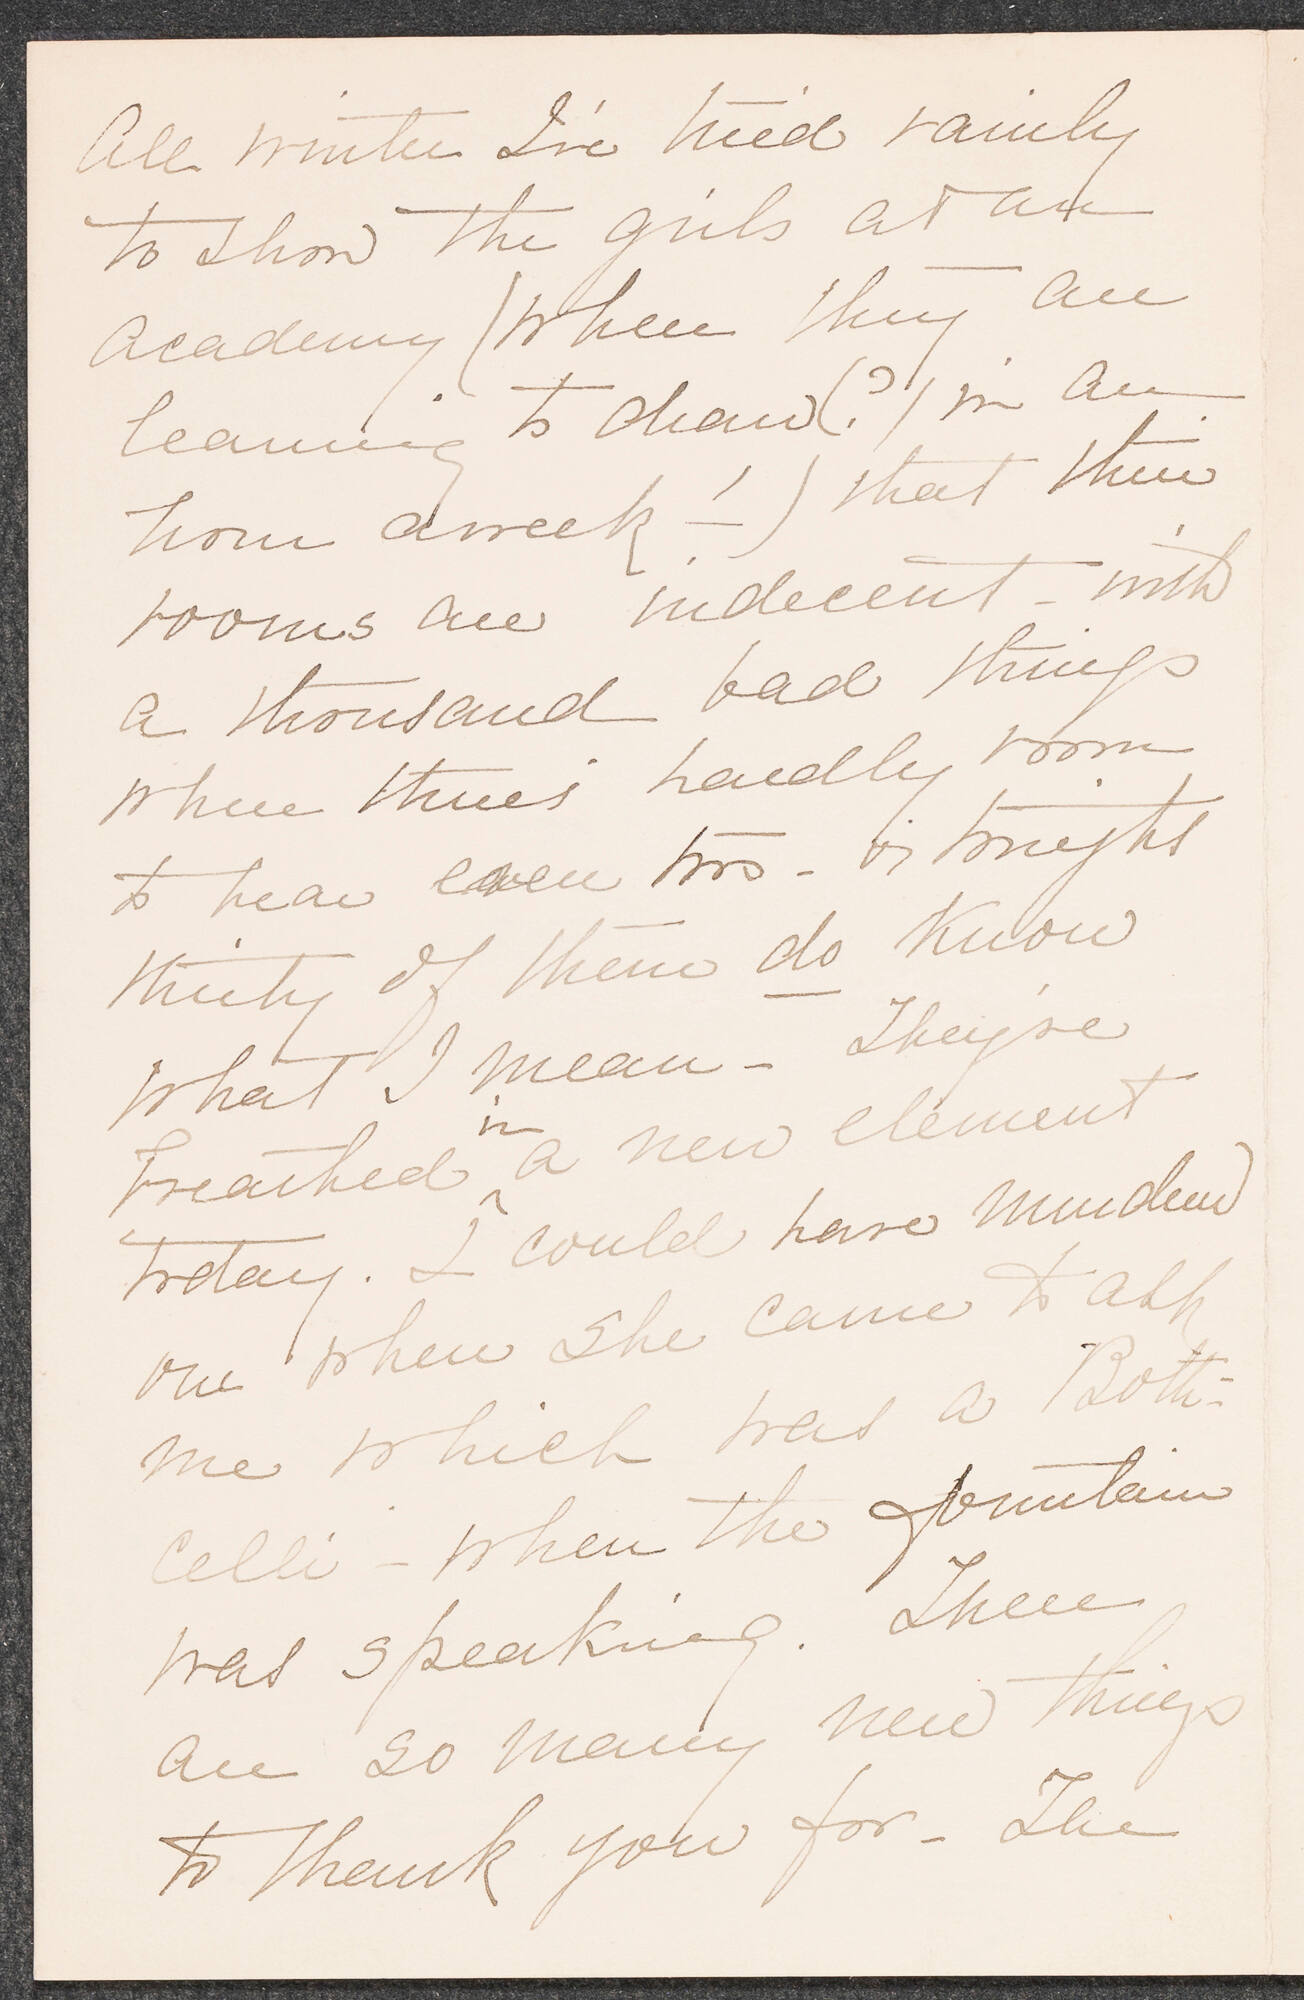 All winter I've tried vainly
to show the girls at an
academy (where they are
learning to draw(?) in an
hour a week!) that their
rooms are indecent – with
a thousand bad things
where there's hardly room
to hear even two –
thirty of them do know
what I mean – They've
breathed in a new element
today. I could have murdered
one when she came to ask
me which was a Botti-
celli – when the fountain
was speaking. There
are so many new things
to thank you for – The